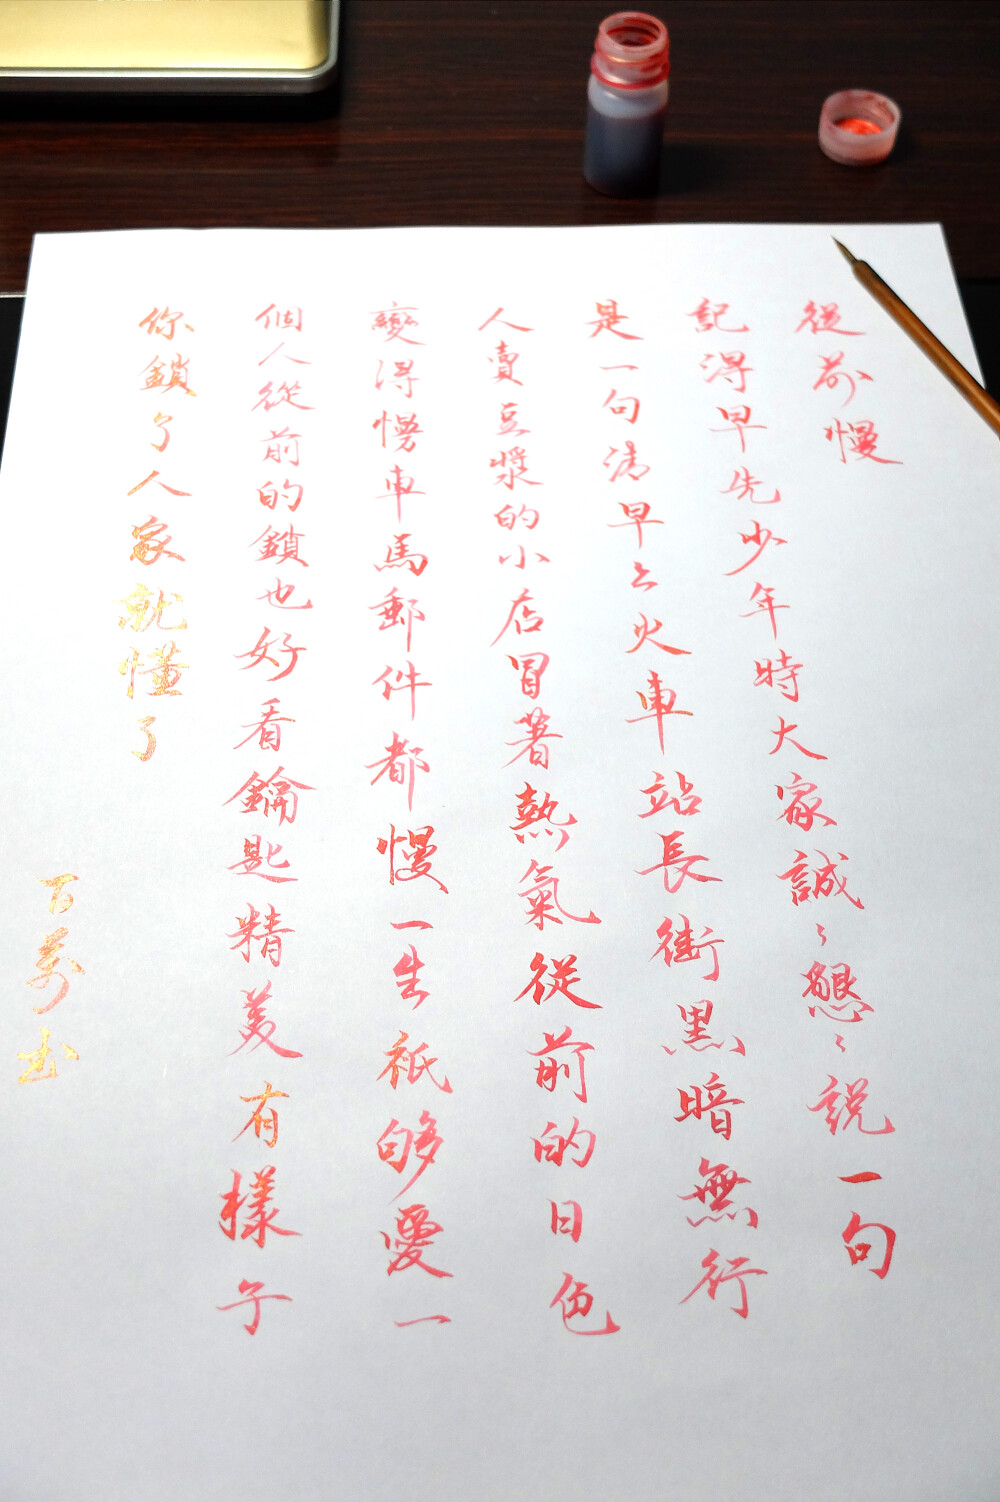 從前慢
記得早先少年時大家誠〻懇〻說一句
是一句清早上火車站長街黑暗無行
人賣豆漿的小店冒著熱氣從前的日色
變得慢車馬郵件都慢一生祇够愛一
個人從前的鎖也好看鑰匙精美有樣子
你鎖了人家就懂了
百萬书